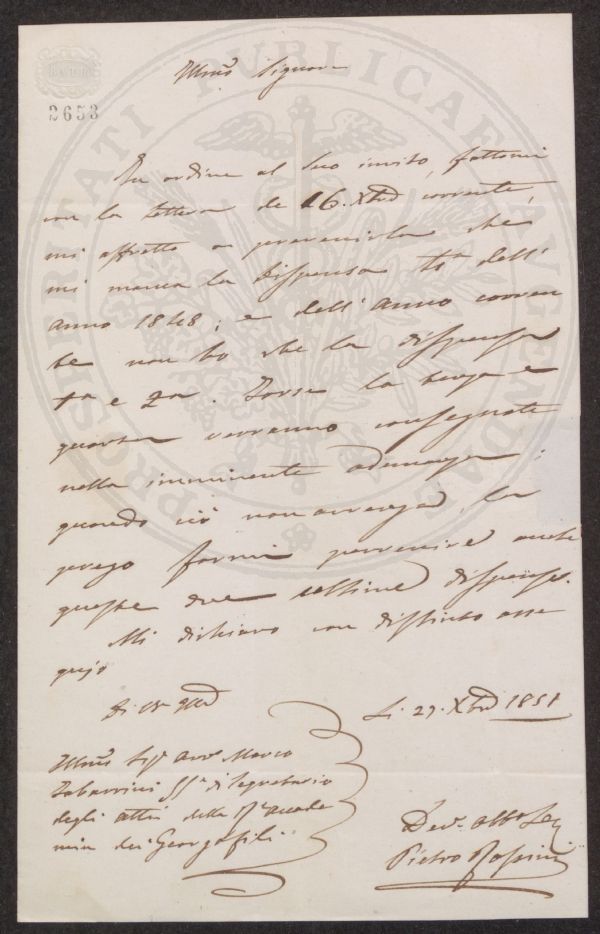 2653
Illmo Signore
In ordine al suo invito, fattomi
con la lettera de 16. Xbre corrente,
mi affretto a prevenirla che
mi manca la dispensa 4ta dell'
anno 1848; e dell'anno corren
te non ho che la dispensa
1a e 2a. Forse la terza e
quarta verranno consegnate
nella imminente adunanza;
quando ciò non avvenga, la
prego farmi pervenire anche
queste due ultime dispense.
Mi dichiaro con distinto osse
quio
Di
Li 27. Xbre 1851
Illmo Sigr Avvo Marco
Tabarrini Segretario
degli atti della Rle accade
mia dei Georgofili
Devo Obbo
Pietro
PROSPERITATI PUBLICAE AUGENDAE